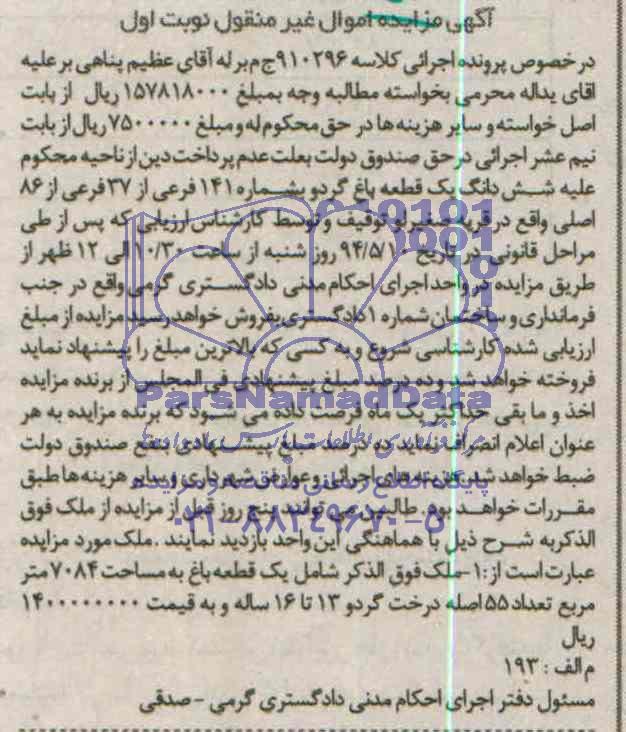 آگهی مزایده اموال غیر منقول نوبت اول
در خصوص پرونده اجرائی کلاسه ۹۱۰۲۹۶ ج م بر له آقای عظیم پناهی بر علیه
اقای یداله محرمی بخواسته مطالبه وجه بمبلغ ۱۵۷۸۱۸۰۰۰ ریال از بابت
اصل خواسته و سایر هزینه ها در حق محکوم له و مبلغ ۷۵۰۰۰۰۰ ریال از بابت
نیم عشر اجرائی در حق صندوق دولت بعلت عدم پرداخت دین از ناحیه محکوم
علیه شش دانگ یک قطعه باغ گردو بشماره ۱۴۱ فرعی از ۳۷ فرعی از ۸۶
اصلی واقع در قریه صفیر لو توقیف و توسط کارشناس ارزیابی که پس از طی
مراحل قانونی در تاریخ ۹۴/۵/۱۰ روز شنبه از ساعت ۱۰/۳۰ الی ۱۲ ظهر از
طریق مزایده در واحد اجرای احکام مدنی دادگستری گرمی واقع در جنب
فرمانداری و ساختمان شماره ۱ دادگستری بفروش خواهد رسید مزایده از مبلغ
ارزیابی شده کارشناسی شروع و به کسی که بالاترین مبلغ را پیشنهاد نماید
فروخته خواهد شد و ده درصد مبلغ پیشنهادی فی المجلس از برنده مزایده
اخذ و ما بقی حداکثر یک ماه فرصت داده می شود که برنده مزایده به هر
عنوان اعلام انصراف نماید ده درصد مبلغ پیشنهادی بنفع صندوق دولت
ضبط خواهد شد هزینه های اجرائی و عوارض شهرداری و سایر هزینه ها طبق
مقررات خواهد بود طالبین می توانند پنج روز قبل از مزایده از ملک فوق
الذکر به شرح ذیل با هماهنگی این واحد بازدید نمایند . ملک مورد مزایده
عبارت است از : ۱- ملک فوق الذکر شامل یک قطعه باغ به مساحت ۷۰۸۴ متر
مربع تعداد ۵۵ اصله درخت گردو ۱۳ تا ۱۶ ساله و به قیمت ۱۴۰۰۰۰۰۰۰۰
ریال
م الف : ۱۹۳
مسئول دفتر اجرای احکام مدنی دادگستری گرمی - صدقی
ParsNamadData
۰۲۱-۸۸۳۴۹۶۷۰-۵